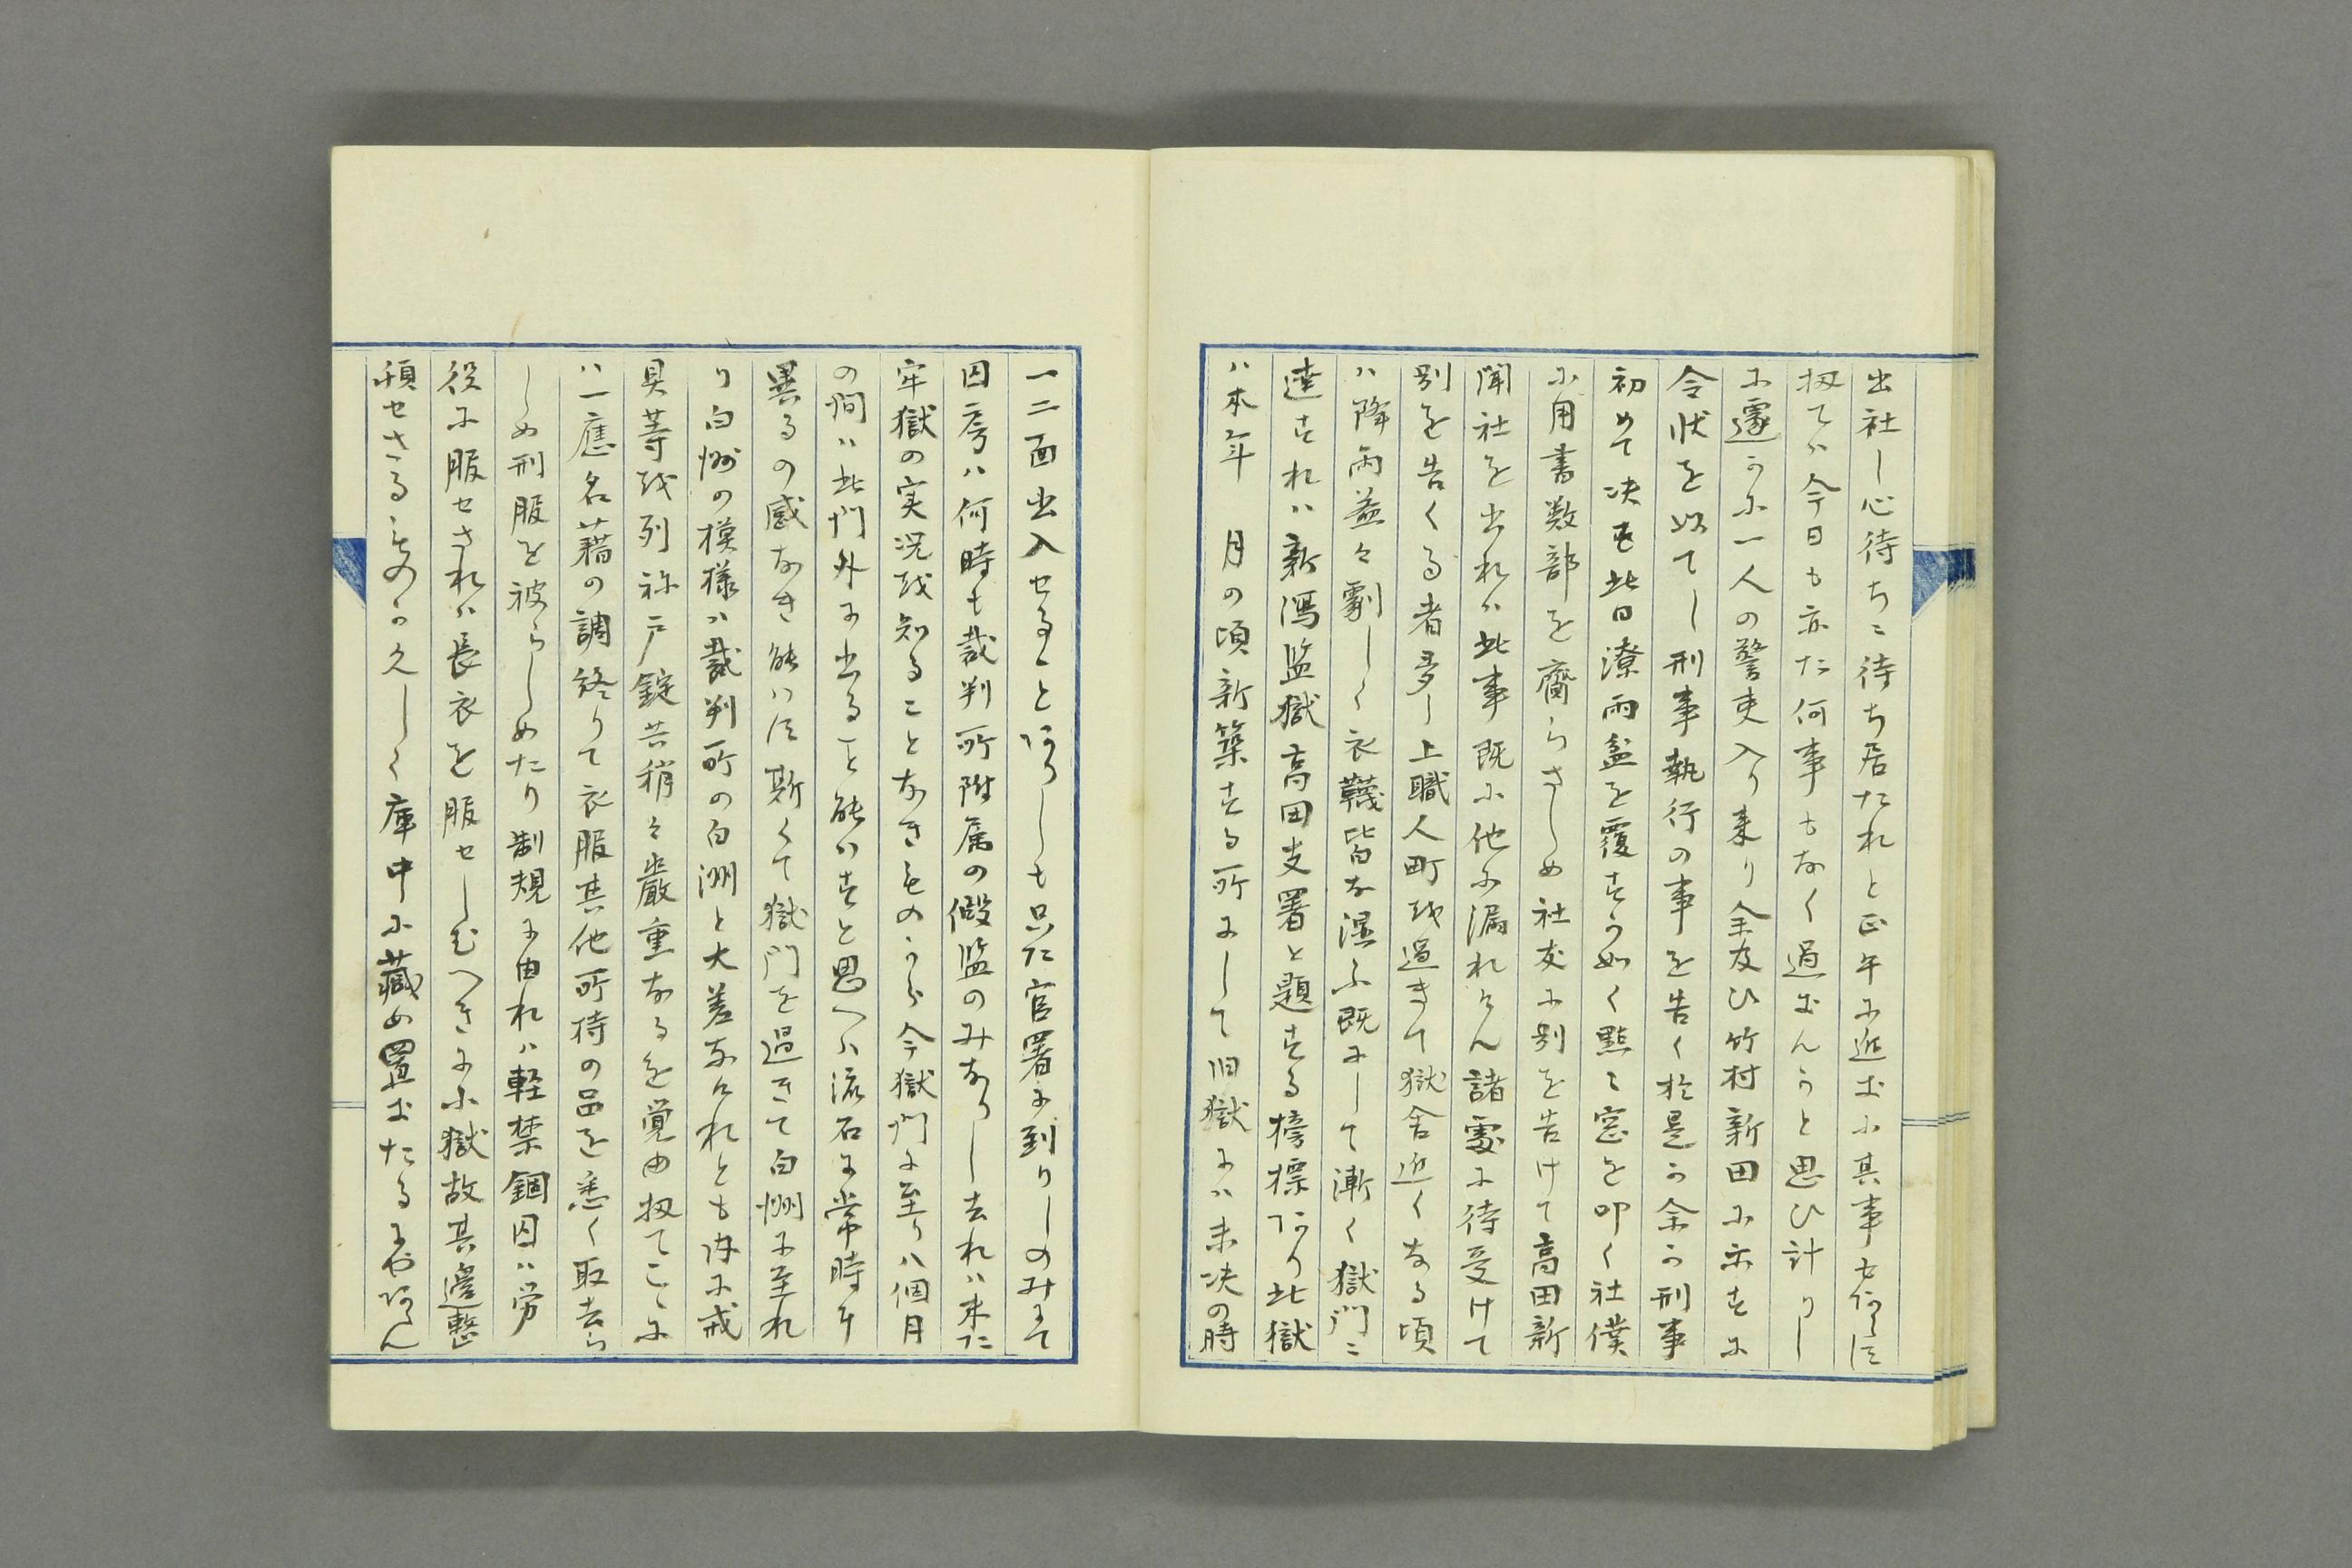 出社し心待ちニ待ち居たれと正午に近まに其事も何〻
扨ては今日も亦た何事もなく過ぎんかと思ひ計りし
に遽かに一人の警吏入り来り余及ひ竹村新田に示すに
令状を以てし刑事執行の事を告く於是か余か刑事
初めて決す此日潦雨盆を覆すか如く點々窓を叩く社僕
に用書数部を齎らさしめ社友に別を告けて高田新
聞社を出れは此事既に他に漏れけん諸處に待受けて
別を告くる者多し上職人町を過きて獄舎近くなる頃
ハ降雨益々劇しく衣韈皆な湿ふ既にして漸く獄門ニ
達すれハ新潟監獄高田支署と題する榜標あり此獄
ハ本年　月の頃新築する所にして旧獄にハ未决の時
一二面出入せることありしも只た官署に到りしのみにて
囚房ハ何時も裁判所附属の假監のみなりし去れハ未た
牢獄の実況を知ることなきものから今獄門に至り八個月
の間ハ此門外に出ること能ハすと思へハ流石に常時と
異るの感なき能はす斯くて獄門を過きて白洲に至れ
り白洲の模様ハ裁判所の白洲と大差なけれとも殊に戒
具等を列ね戸錠共稍々嚴重なるを覚ゆ扨てこゝに
ハ一應名籍の調終りて衣服其他所持の品を悉く取去ら
しめ刑服を被らしめたり制規に由れハ軽禁錮囚ハ労
役に服せされハ長衣を服せしむへきに小獄故其邊整
頓せさるものか久しく庫中に藏め置きたるにやあらん